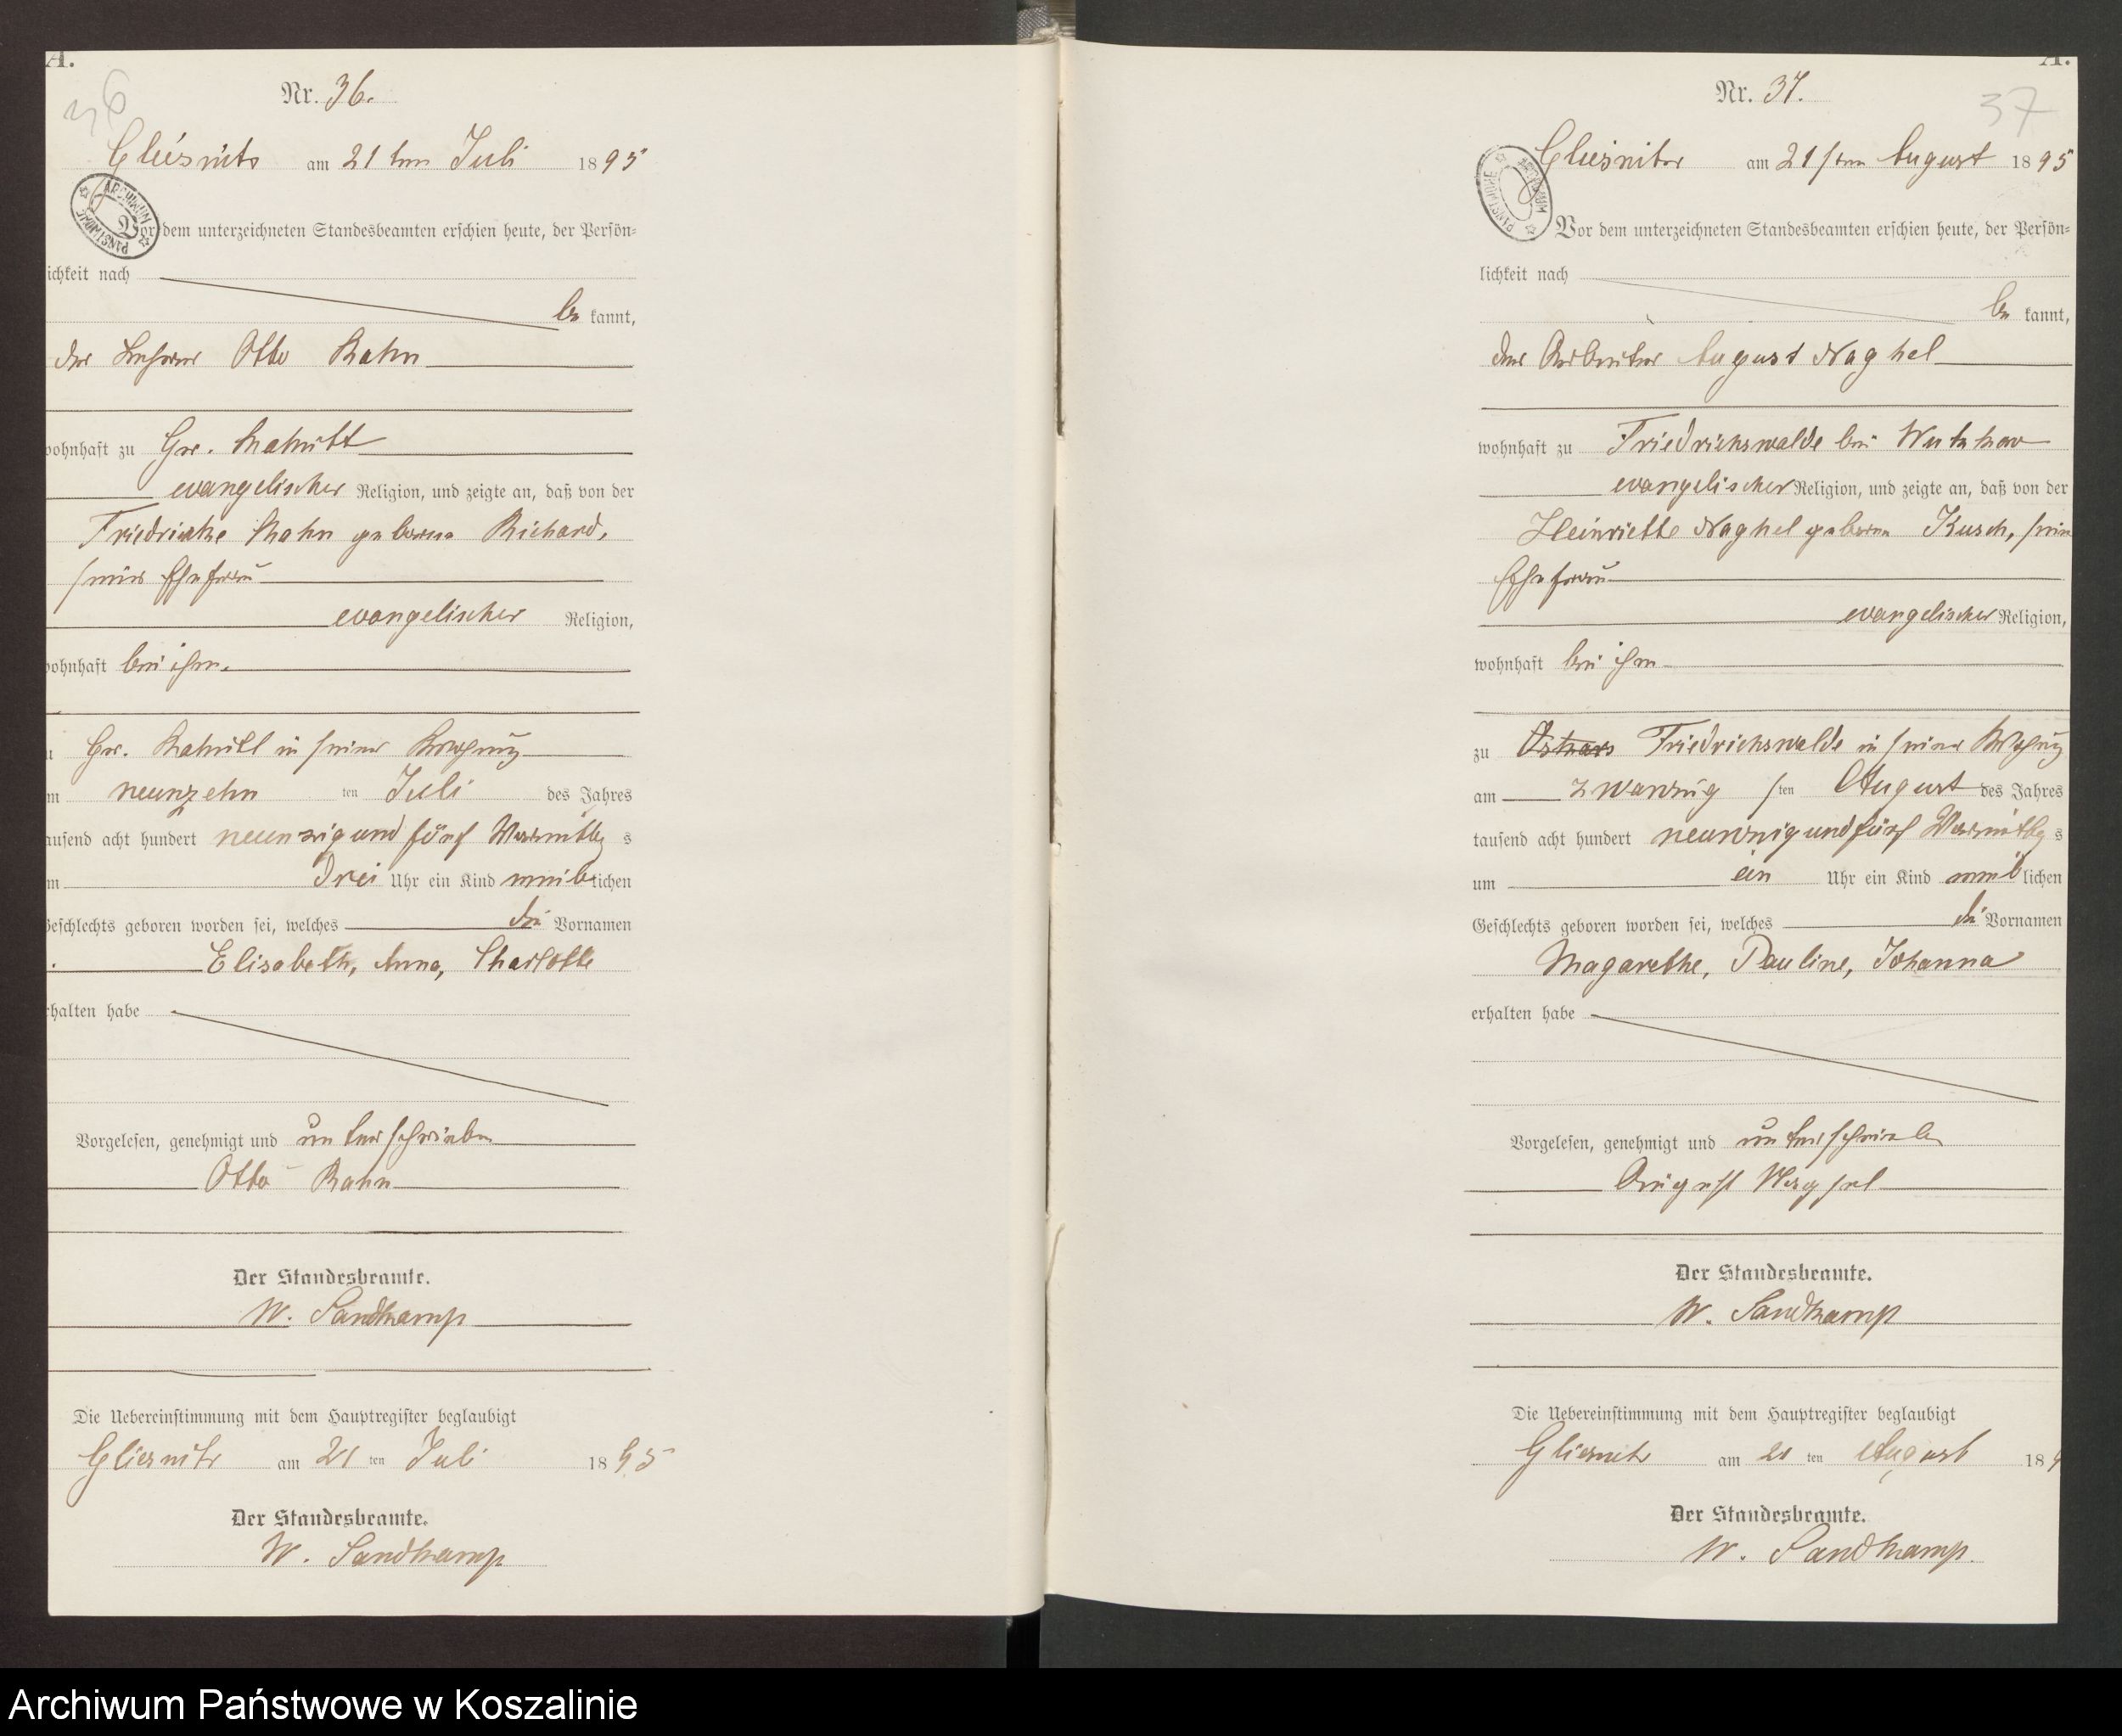 A.
36
Nr. 36.
Gliesnitz am 21ten Juli 1895
ARCHIWUM PAŃSTWOWE
Vor dem unterzeichneten Standesbeamten erschien heute, der Persön-
lichkeit nach
be kannt,
der Lehrer Otto Rahn
wohnhaft zu Gr. Rakitt
evangelischer Religion, und zeigte an, daß von der
Friedrieke Rahn geborne Richard,
seiner Ehefrau
evangelischer Religion,
wohnhaft bei ihm.
zu Gr. Rakitt in seiner Wohnung
am neunzehn ten Juli des Jahres
tausend acht hundert neunzig und fünf Vormittag s
um Drei Uhr ein Kind weiblichen
Geschlechts geboren worden sei, welches die Vornamen
Elisabeth, Anna, Charlotte
erhalten habe
Vorgelesen, genehmigt und unterschrieben
Otto Rahn
Der Standesbeamte.
W. Sandkamp
Die Uebereinstimmung mit dem Hauptregister beglaubigt
Gliesnitz am 21 ten Juli 1895
Der Standesbeamte.
W. Sandkamp
A.
37
Nr. 37.
Gliesnitz am 21sten August 1895
ARCHIWUM PAŃSTWOWE
Vor dem unterzeichneten Standesbeamten erschien heute, der Persön-
lichkeit nach
be kannt,
der Arbeiter August Naghel
wohnhaft zu Friedrichswalde bei Wutzkow
evangelischer Religion, und zeigte an, daß von der
Heinriette Naghel geborne Kusch, seine
Ehefrau
evangelischer Religion,
wohnhaft bei ihm
zu Friedrichswalde in seiner Wohnung
am zwanzig sten August des Jahres
tausend acht hundert neunzig und fünf Vormittag s
um ein Uhr ein Kind weiblichen
Geschlechts geboren worden sei, welches die Vornamen
Magarethe, Pauline, Johanna
erhalten habe
Vorgelesen, genehmigt und unterschrieben
August
Der Standesbeamte.
W. Sandkamp
Die Uebereinstimmung mit dem Hauptregister beglaubigt
Gliesnitz am 21 ten August 189
Der Standesbeamte.
W. Sandkamp.
Archiwum Państwowe w Koszalinie